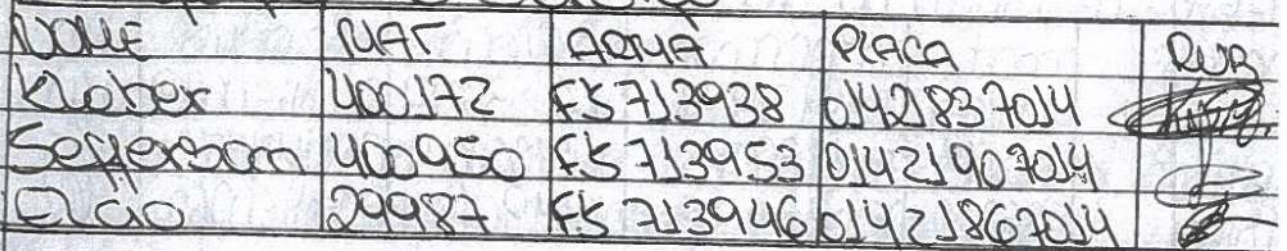 NOME MAT ARMA PLACA RUB
Kleber 400172 FK713938 0142837014
Jefferson 400950 FK713953 01421907014
Elcio 29987 FK713946 01421867014